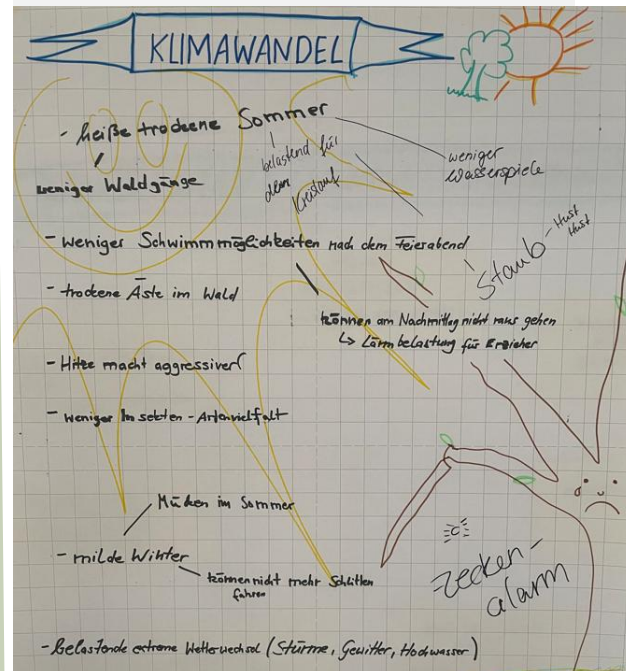 KLIMAWANDEL
- heiße trockene Sommer
belastend für
den
Kreislauf
weniger
Wasserspiele
weniger Waldgänge
- weniger Schwimmmöglichkeiten nach dem Feierabend
Staub - Hust
Hust
- trockene Äste im Wald
können am Nachmittag nicht raus gehen
↳ Lärmbelastung für Erzieher
- Hitze macht aggressiver
- weniger Insekten - Artenvielfalt
Mücken im Sommer
- milde Winter
können nicht mehr Schlitten
fahren
Zecken-
alarm
- Belastende extreme Wetterwechsel (Stürme, Gewitter, Hochwasser)